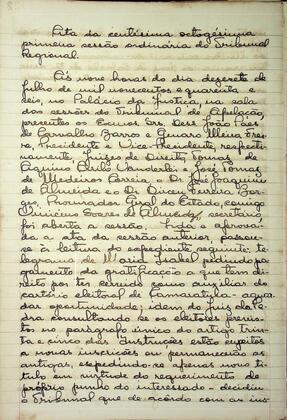 Acta da centésima octogésima
primeira sessão ordinária do Tribunal
Regional.
Ás nove horas do dia dezesete de
julho de mil novecentos e quarenta e
seis, no Palácio da Justiça, na sala
das sessões do Tribunal de Apelação,
presentes os Exmos. Srs. Des. João Paes
de Carvalho Barros e Genaro Freire,
Presidente e Vice-Presidente, respecti-
vamente, Juizes de Direito, Tomás de
Aquino Cirilo Wanderlei e José Tomás
de Medeiros Correia e Dr. José Joaquim
de Almeida e o Dr. Dirceu Ferreira Bor-
ges, Procurador Geral do Estado, comigo
Vinicius Soares de Almeida, secretário,
foi aberta a sessão. Lida e aprova-
da a ata da sessão anterior, passou-
se á leitura do expediente seguinte: te-
legrama de Maria Isabel pedindo pa-
gamento da gratificação a que tem di-
reito por ter servido como auxiliar do
cartório eleitoral de Camaratuba - aguar-
dar oportunidade; idem do Juiz de
consultando se os eleitores previs-
tos no parágrafo único do artigo trin-
ta e cinco das Instruções estão sujeitos
a novas inscrições ou permanecerão as
antigas, expedindo-se apenas novo tí-
tulo em virtude do requerimento do
próprio punho do interessado - decidiu
o Tribunal que de acôrdo com as ins-